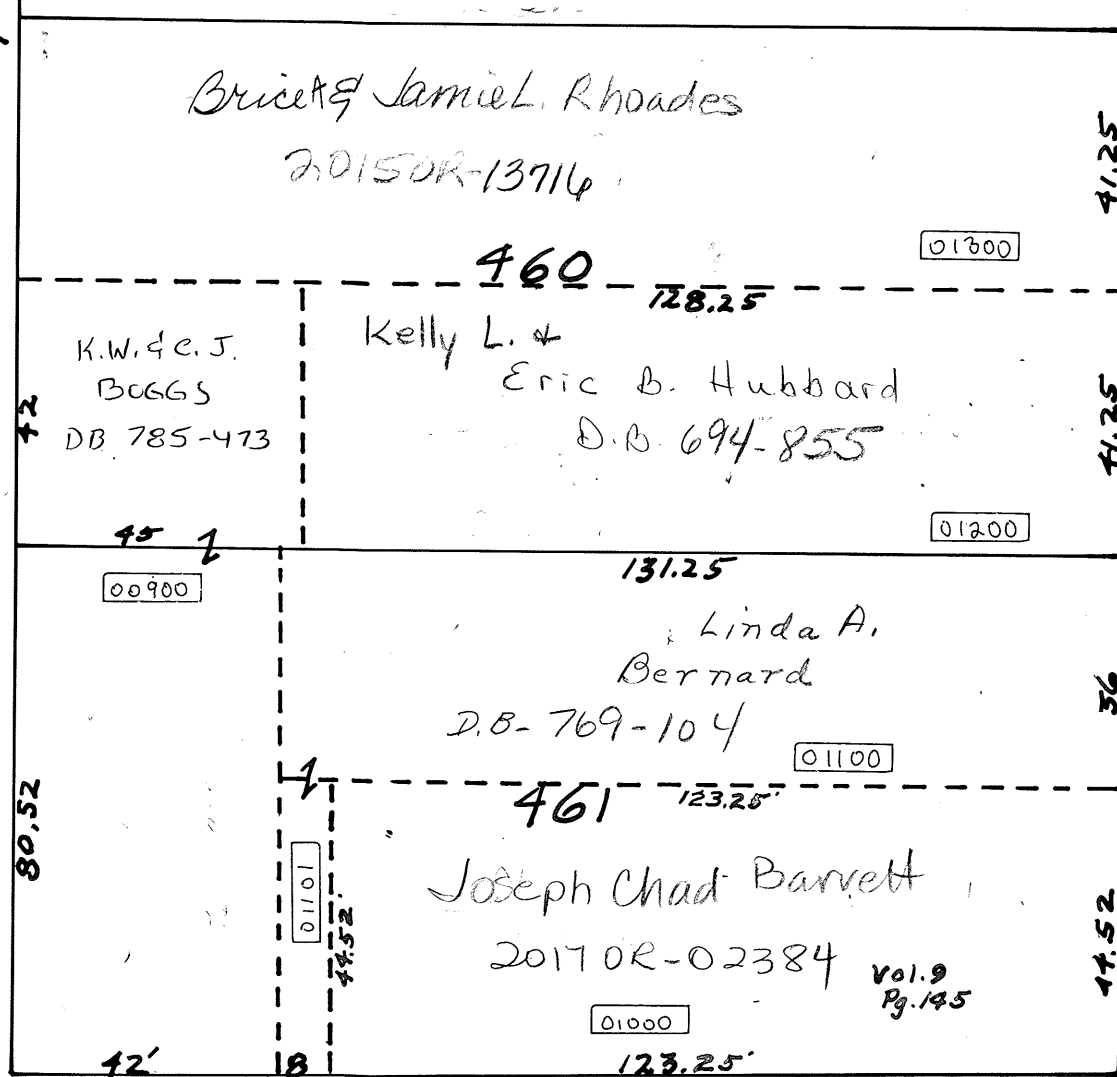 Brice A & Jamie L. Rhoades
2015OR-13716
41.25
01300
460
128.25
K.W. & C. J.
BOGGS
DB 785-473
42
45
Kelly L. &
Eric B. Hubbard
D.B. 694-855
41.25
01200
00900
131.25
Linda A.
Bernard
D.B- 769-104
36
01100
461
123.25'
80.52
01101
44.52'
Joseph Chad Barrett
2017 OR-02384
Vol.9
Pg.145
44.52
01000
42'
8
123.25'